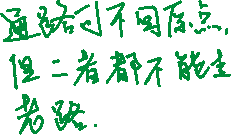 通路可不同原点,
但二者都不能走
老路.